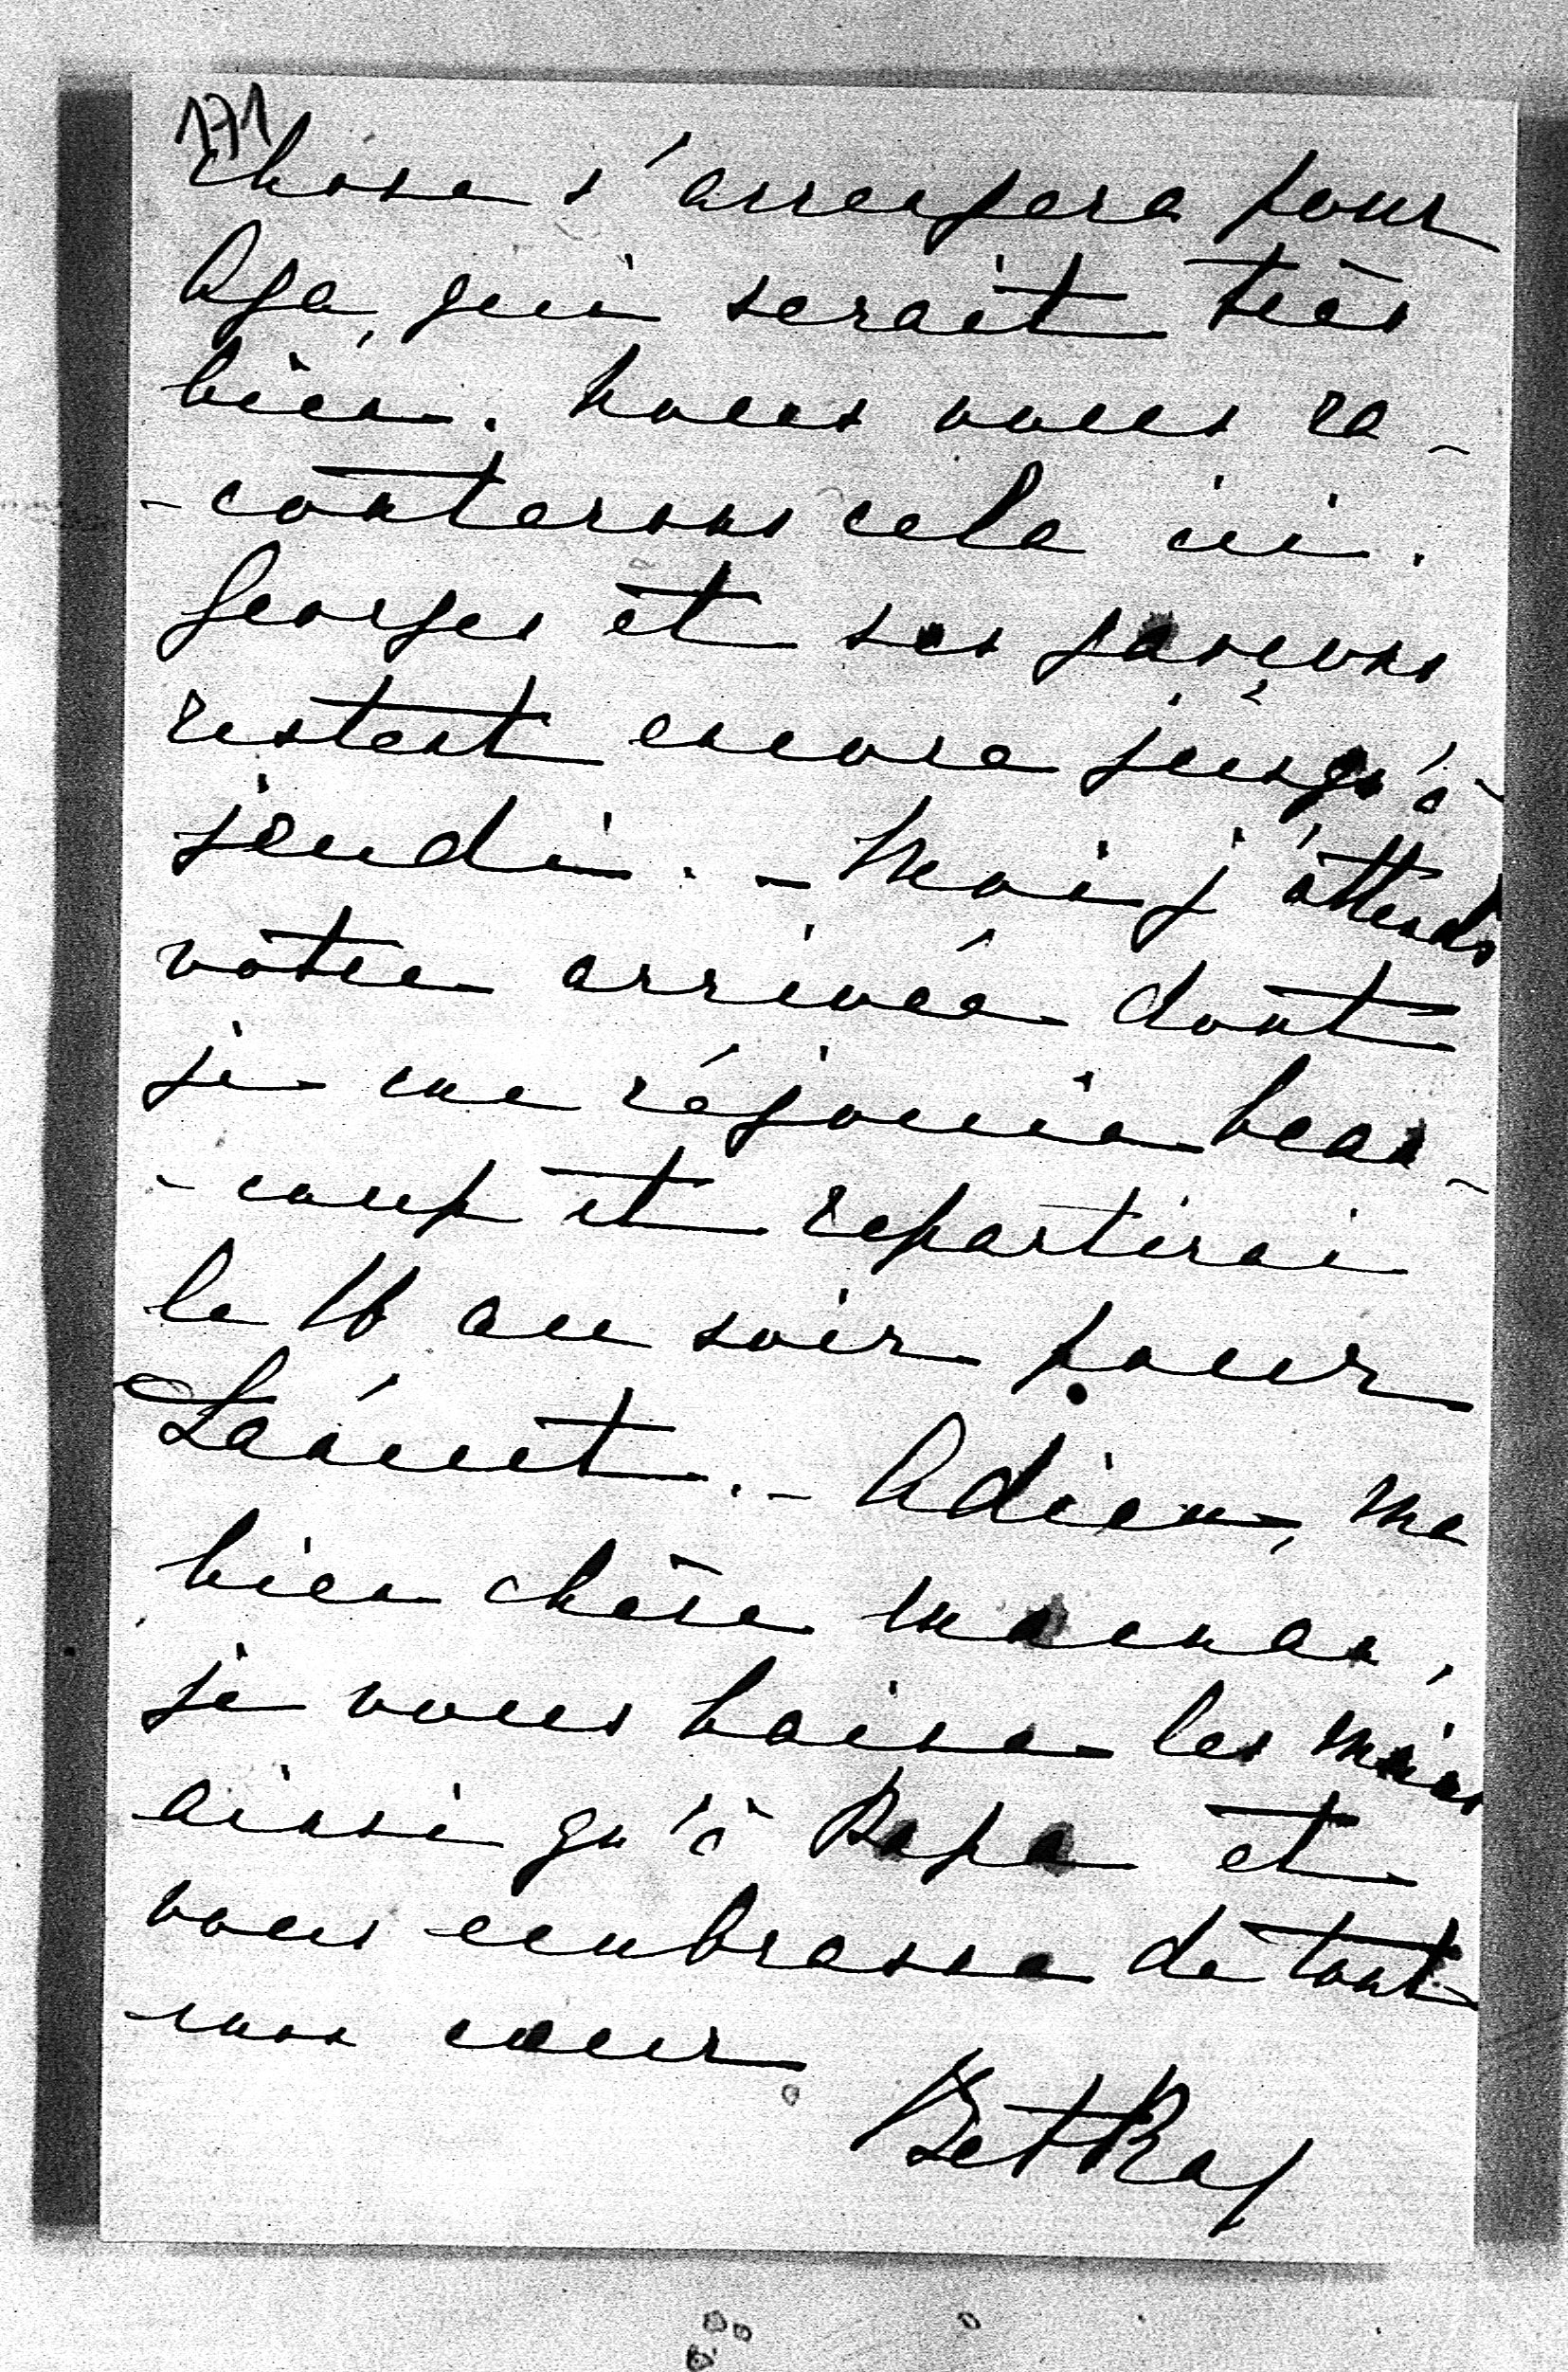 171
chose s'arrangera pour
Aga, qui serait très
bien. Nous vous ra-
-conterons cela ici.
Georges et ses garçons
restent encore jusqu'à
jeudi. - Moi j'attends
votre arrivée dont
je me réjouis beau-
-coup et repartirai
le 16 au soir pour
Łańcut. - Adieu, ma
bien chère maman,
je vous baise les mains
ainsi qu'à Papa et
vous embrasse de tout
mon cœur
BetRap